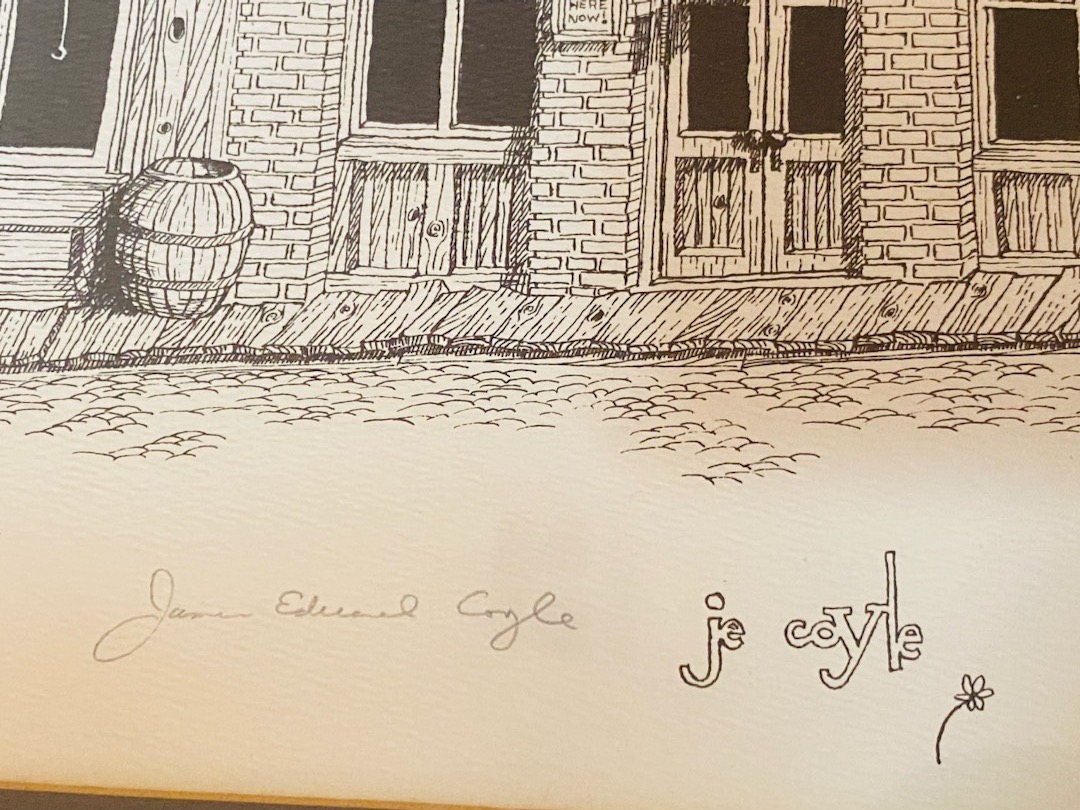 HERE
NOW!
James Edward Coyle
je coyle